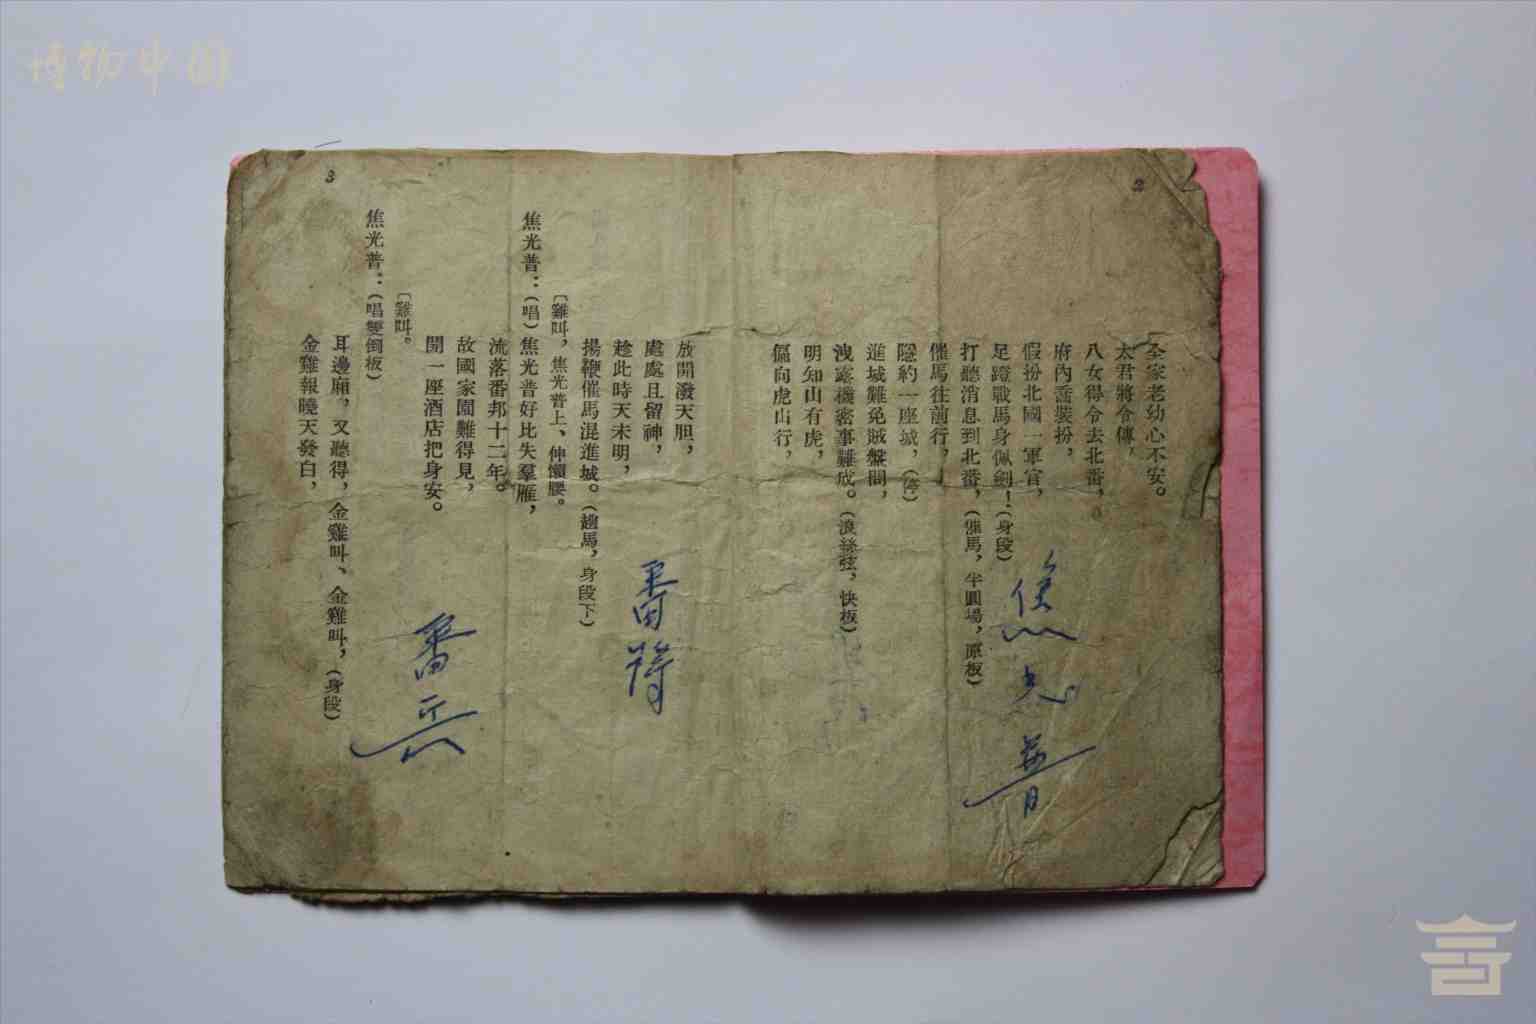 博物中国
2
全家老幼心不安。
太君將令傳，
八女得令去北番，
府內喬裝扮，
假扮北國一軍官，
足蹬戰馬身佩劍！（身段）
打聽消息到北番，（催馬，半圓場，原板）
催馬往前行，
隱約一座城，
進城難免賊盤問，
洩露機密事難成。（浪絲弦，快板）
明知山有虎，
偏向虎山行，
焦光普
放開潑天胆，
處處且留神，
趁此時天未明，
揚鞭催馬混進城。（趟馬，身段下）
〔雞叫，焦光普上、伸懶腰。
焦光普：（唱）焦光普好比失羣雁，
流落番邦十二年。
故國家園難得見，
開一座酒店把身安。
〔雞叫。
焦光普：（唱雙倒板）
耳邊廂，又聽得，金雞叫、金雞叫，（身段）
金雞報曉天發白，
3
番將
番兵